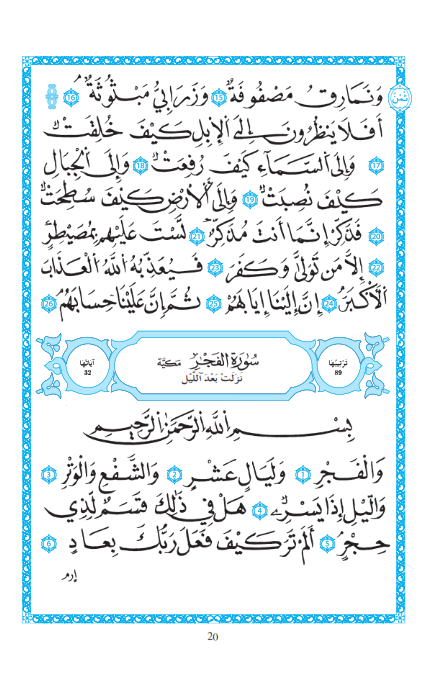 ثُمُن
وَنَمَارِقُ مَصْفُوفَةٌ 15 وَزَرَابِيُّ مَبْثُوثَةٌ 16
أَفَلَا يَنظُرُونَ إِلَى اَلْإِبِلِ كَيْفَ خُلِقَتْ
17 وَإِلَى اَلسَّمَآءِ كَيْفَ رُفِعَتْ 18 وَإِلَى اَلْجِبَالِ
كَيْفَ نُصِبَتْ 19 وَإِلَى اَلْأَرْضِ كَيْفَ سُطِحَتْ
20 فَذَكِّرْ إِنَّمَا أَنتَ مُذَكِّرٌ 21 لَّسْتَ عَلَيْهِم بِمُصَيْطِرٍ
22 إِلَّا مَن تَوَلَّىٰ وَكَفَرَ 23 فَيُعَذِّبُهُ اُللَّهُ اُلْعَذَابَ
اَلْأَكْبَرَ 24 إِنَّ إِلَيْنَا إِيَابَهُمْ 25 ثُمَّ إِنَّ عَلَيْنَا حِسَابَهُمْ 26
تَرْتِيبُهَا 89
سُورَةُ الْفَجْرِ مَكِّيَّة
نَزَلَتْ بَعْدَ اللَّيْل
آيَاتُهَا 32
بِسْمِ اِللَّهِ اِلرَّحْمَٰنِ اِلرَّحِيمِ
وَالْفَجْرِ 1 وَلَيَالٍ عَشْرٍ 2 وَالشَّفْعِ وَالْوَتْرِ 3
وَالَّيْلِ إِذَا يَسْرِ 4 هَلْ فِي ذَٰلِكَ قَسَمٌ لِّذِي
حِجْرٍ 5 أَلَمْ تَرَ كَيْفَ فَعَلَ رَبُّكَ بِعَادٍ 6
إرم
20